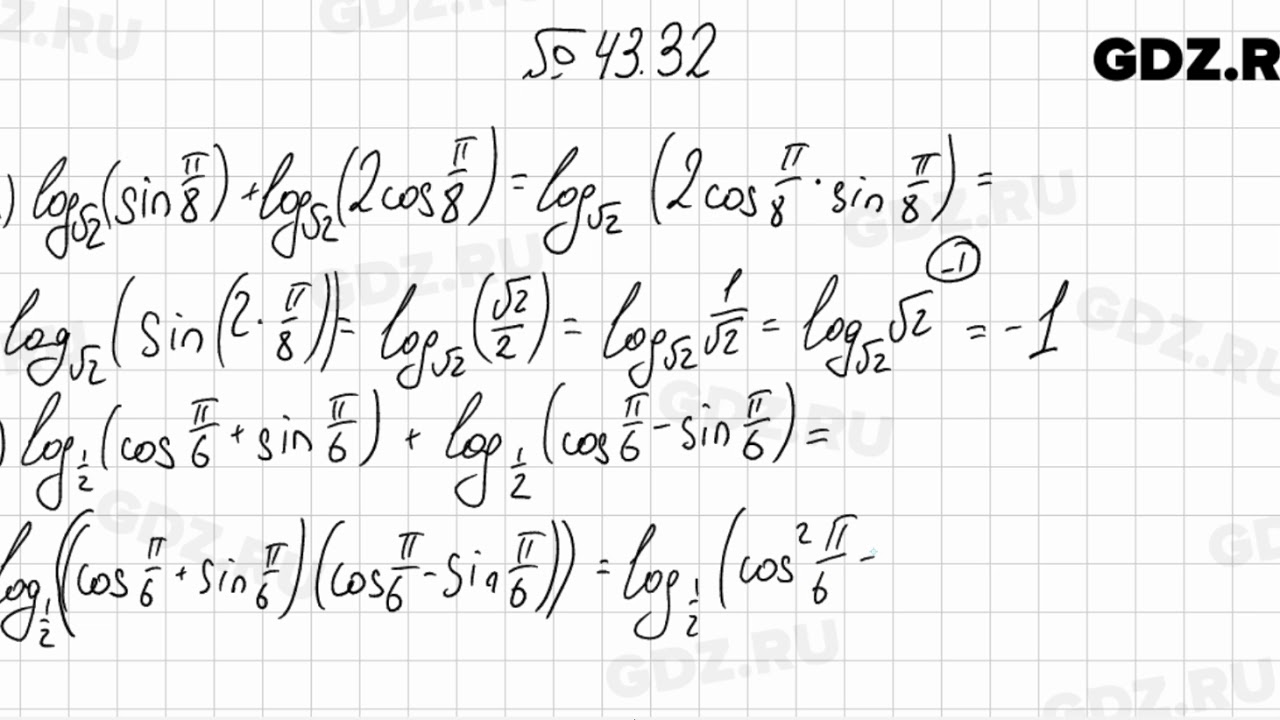 № 43.32
GDZ.R
) log_√2 (sin π/8) + log_√2 (2cos π/8) = log_√2 (2cos π/8 · sin π/8) =
log_√2 (sin (2 · π/8)) = log_√2 (√2/2) = log_√2 1/√2 = log_√2 √2^(-1) = -1
) log_1/2 (cos π/6 + sin π/6) + log_1/2 (cos π/6 - sin π/6) =
log_1/2 ((cos π/6 + sin π/6)(cos π/6 - sin π/6)) = log_1/2 (cos² π/6 -
GDZ.RU